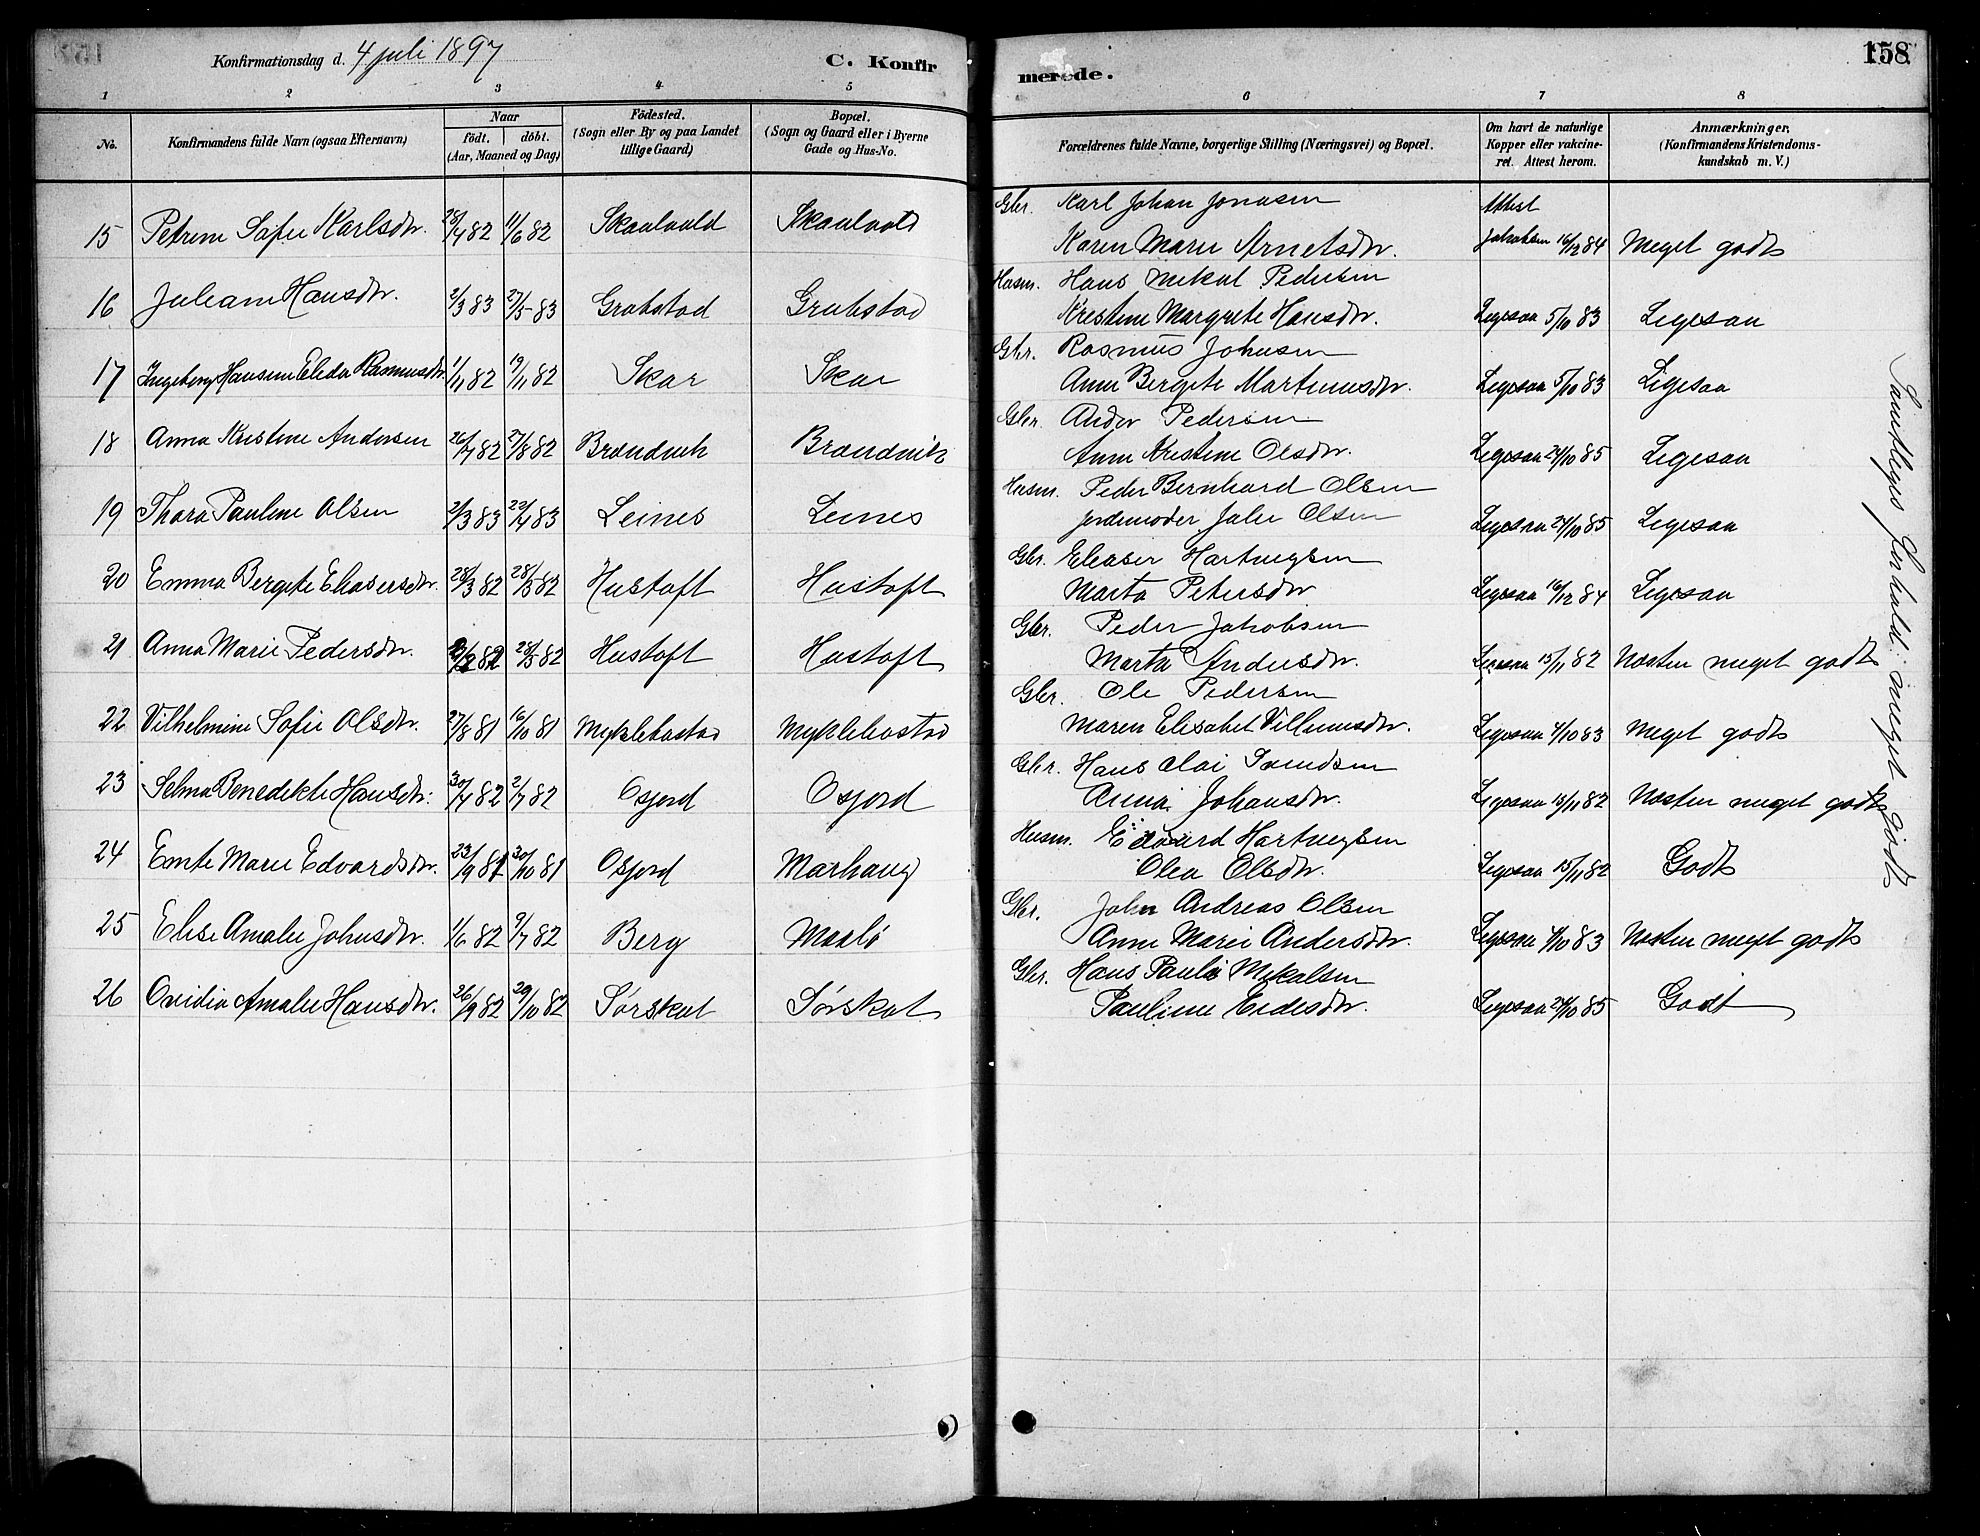 Konfirmationsdag d. 4 juli 1897
C. Konfir
merede.
158
1 2 3 4 5 6 7 8
No.
Konfirmandens fulde Navn (ogsaa Efternavn)
Naar
födt. döbt.
(Aar, Maaned og Dag)
Födested.
(Sogn eller By og paa Landet
tillige Gaard)
Bopæl.
(Sogn og Gaard eller i Byerne
Gade og Hus-No.
Forældrenes fulde Navne, borgerlige Stilling (Næringsvei) og Bopæl.
Om havt de naturlige
Kopper eller vakcine-
ret. Attest herom.
Anmærkninger.
(Konfirmandens Kristendoms-
kundskab m. V.)
Gbr. Karl Johan Jonasen Attest
15 Petrine Sofie Karlsdtr. 28/4 82 11/6 82 Skaalvold Skaalvold Karen Marie Arnetsdtr. Jakobsen 16/12 84 Meget godt
Husm. Hans Mekal Pedersen
16 Juliane Hansdtr. 2/3 83 27/5 83 Grobstad Grobstad Kristine Margrete Hansdtr. Ligesaa 5/10 83 Ligesaa
Gbr. Rasmus Johnsen
17 Ingeborg Hansine Eleda Rasmusdtr 1/11 82 19/11 82 Skar Skar Anne Bergete Martinusdtr. Ligesaa 5/10 83 Ligesaa
Gbr. Ander Pedersen
18 Anna Kristine Andersen 26/7 82 27/8 82 Brandvik Brandvik Anne Kristine Olsdtr. Ligesaa 24/10 85 Ligesaa
Husm. Peder Bernhard Olsen
19 Thora Pauline Olsen 2/3 83 22/4 83 Leines Leines Jordemoder Julie Olsen Ligesaa 24/10 85 Ligesaa
Gbr. Eleaser Hartvigsen
20 Emma Bergete Eliasersdtr. 28/3 82 28/5 82 Hustoft Hustoft Marta Petersdtr Ligesaa 16/12 84 Ligesaa
Gbr. Peder Jakobsen
21 Anna Marie Pedersdtr. 82 28/5 82 Hustoft Hustoft Marta Andersdtr. Ligesaa 15/11 82 Næsten meget godt
Gbr. Ole Pedersen
22 Vilhelmine Sofie Olsdtr. 27/8 81 16/10 81 Myklebostad Myklebostad Maren Elisabet Villumsdtr. Ligesaa 4/10 83 Meget godt
Gbr. Hans Olai Svendsen
23 Selma Benedikte Hansdtr. 30/4 82 2/7 82 Osjord Osjord Anna Johansdtr. Ligesaa 15/11 82 Næsten meget godt
Husm. Edvard Hartvigsen
24 Emte Marie Edvardsdtr. 23/9 81 30/10 81 Osjord Marhaug Olea Olsdtr. Ligesaa 15/11 82 Godt
Gbr. John Andreas Olsen
25 Elise Amalie Johnsdtr. 1/6 82 9/7 82 Berg Maalö Anne Marie Andersdtr. Ligesaa 4/10 83 Næsten meget godt
Gbr. Hans Paulis Mikalsen
26 Ovidia Amalie Hansdtr. 26/9 82 29/10 82 Sørskot Sørskot Pauline Eidesdtr. Ligesaa 24/10 85 Godt
Samtliges Forhold: meget godt